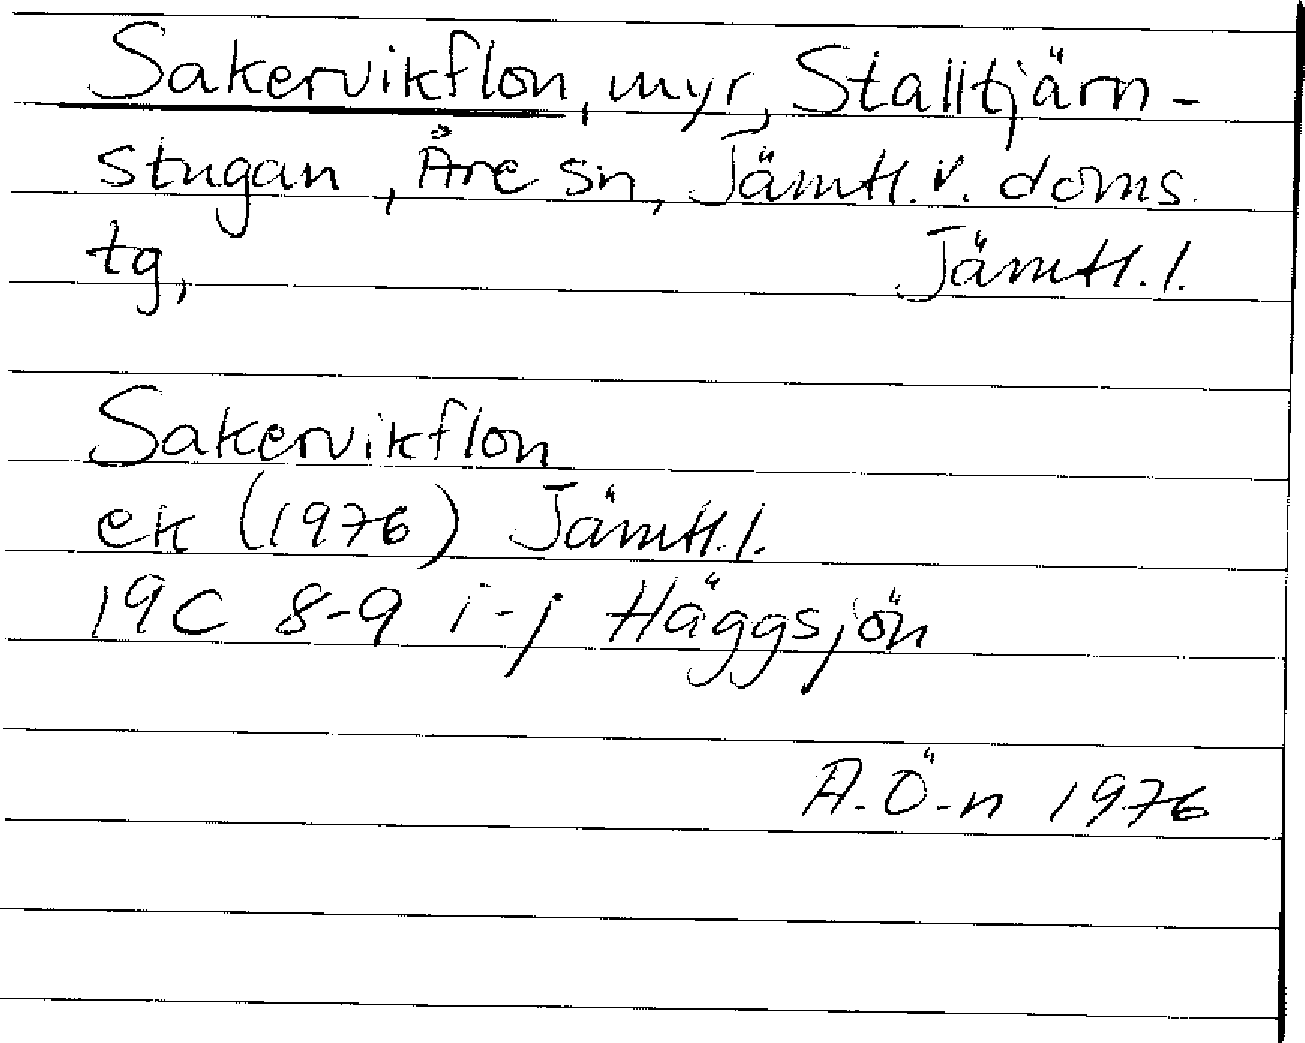 Sakervikflon, myr, Stalltjärn-
stugan, Åre sn, Jämtl. v. doms.
tg, Jämtl. l.
Sakervikflon
ek (1976) Jämtl. l.
19C 8-9 i-j Häggsjön
A. Ö-n 1976